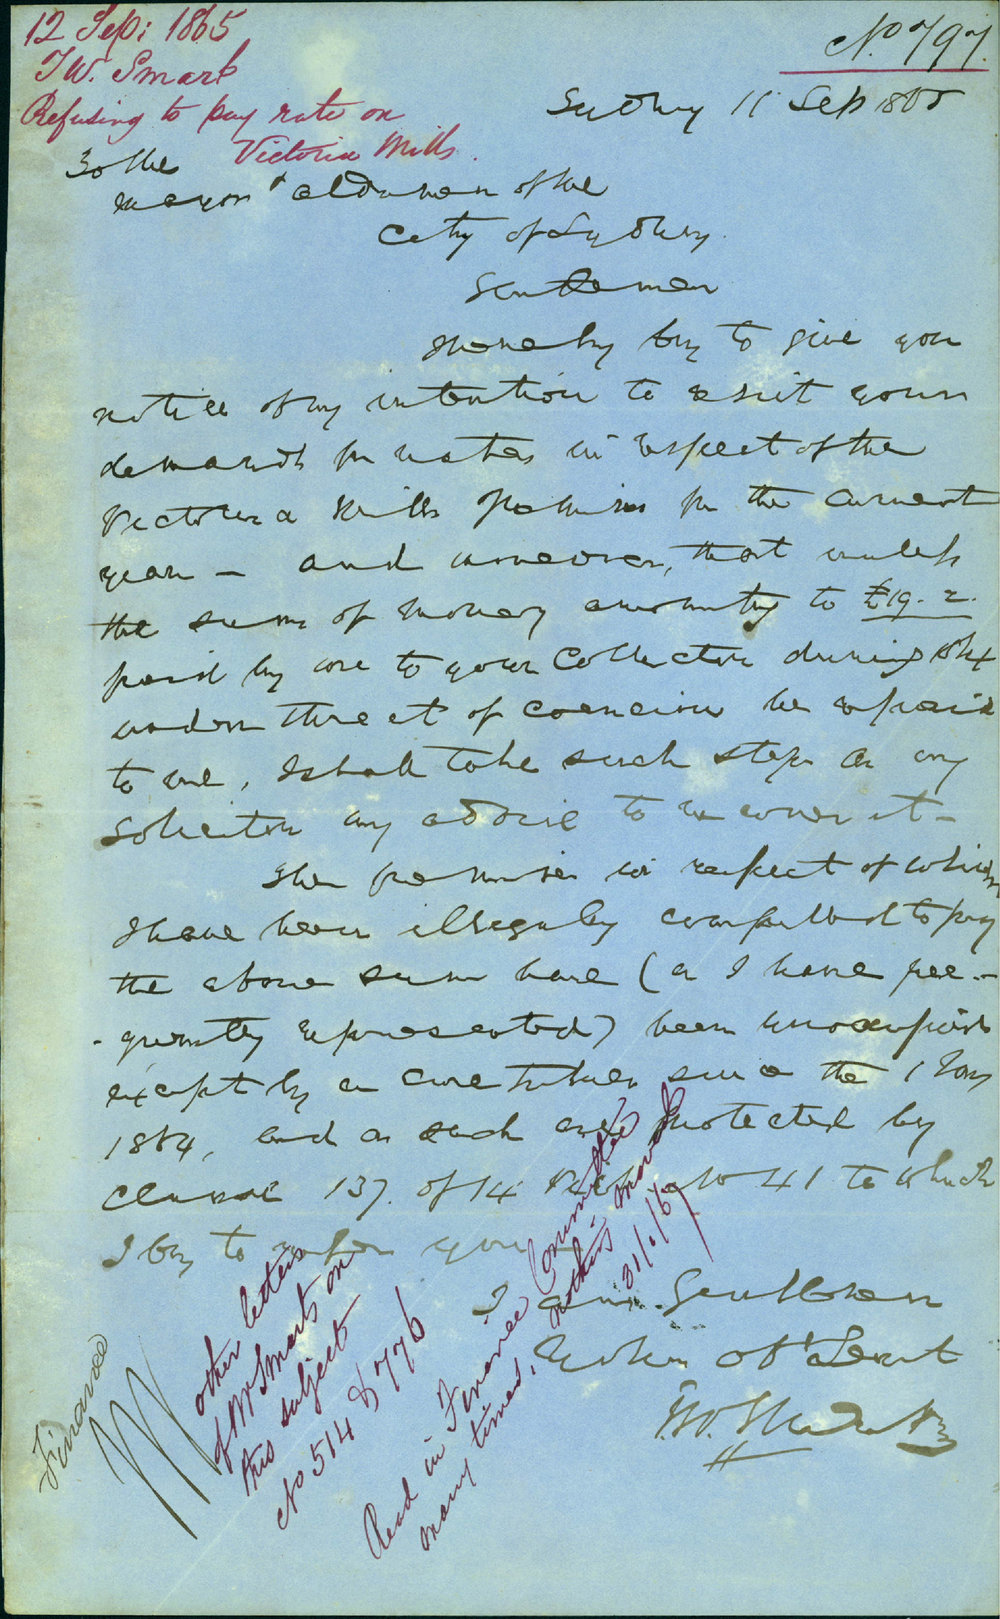 12 Sep: 1865
T W. Smart
Refusing to pay rate on
Victoria Mills.
No. 797.
Sydney 11 Sep 1865
To the
Mayor & aldermen of the
City of Sydney.
Gentlemen
I hereby beg to give you
notice of my intention to resist your
demands for rates in respect of the
Victoria Mills premises for the current
year – and moreover, that unless
the sum of money amounting to £19. 2.
paid by me to your Collector during 1864
under threat of coercion be repaid
to me, I shall take such steps as my
solicitor may advise to recover it –
The premises in respect of which
I have been illegally compelled to pay
the above sum have (as I have fre-
-quently represented) been unoccupied
except by a caretaker since the 1 Jany
1864, and as such are protected by
Clause 137. of 14 Vict. No 41 to which
I beg to refer you
I am Gentlemen
Your Obt Servt
T.W. Smart
Finance
other letters
of Mr Smarts on
this subject
No 514 & 776
Read in Finance Committee
many times, nothing moved
31/1/67